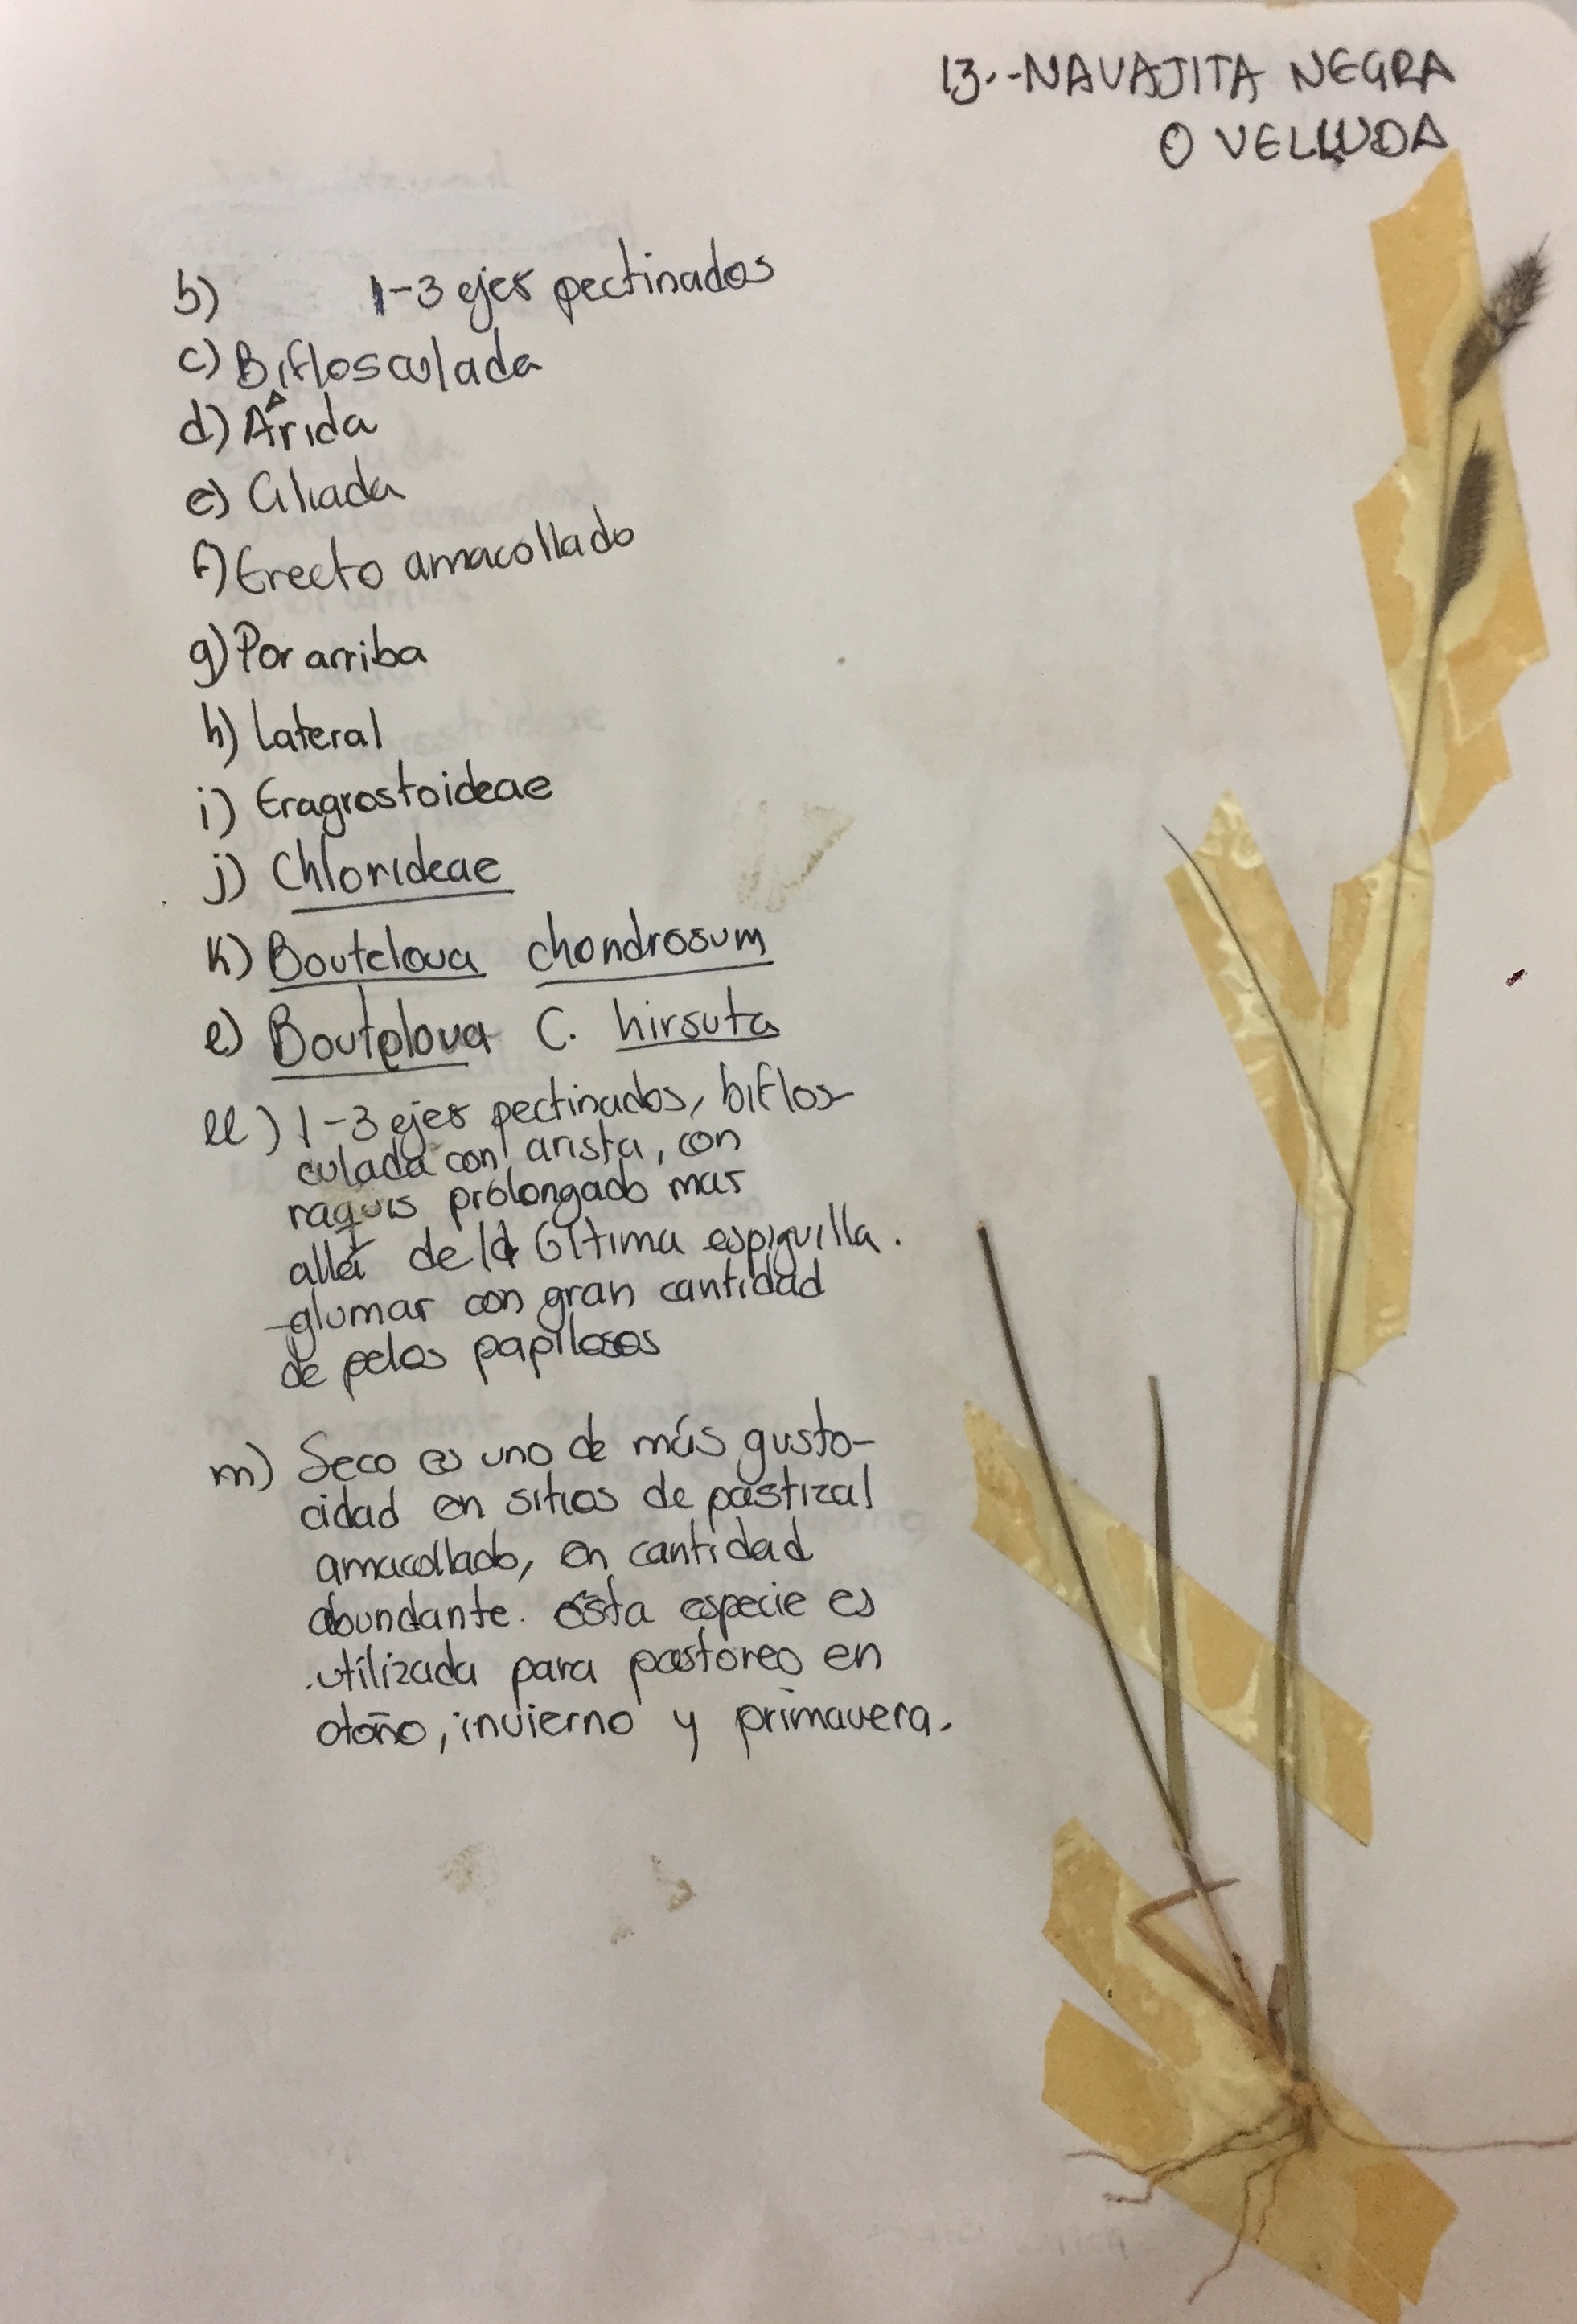 13.-NAVAJITA NEGRA
O VELLUDA
b) 1-3 ejes pectinados
c) Biflosculada
d) Árida
e) Ciliada
f) Erecto amacollado
g) Por arriba
h) Lateral
i) Eragrostoideae
j) Chlorideae
k) Bouteloua chondrosum
e) Bouteloua C. hirsuta
ll) 1-3 ejes pectinados, biflos-
culada con arista, con
raquis prolongado mas
allá de la última espiguilla.
glumas con gran cantidad
de pelos papilosos
m) Seco es uno de más gusto-
cidad en sitios de pastizal
amacollado, en cantidad
abundante. esta especie es
utilizada para pastoreo en
otoño, invierno y primavera.